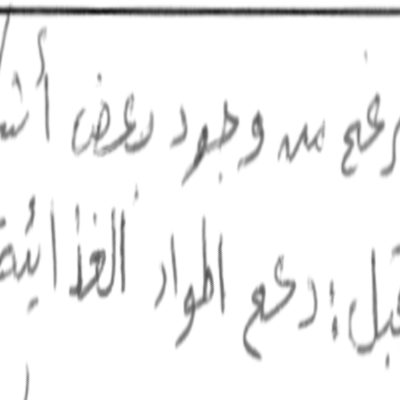 رغم من وجود بعض أشـ
قبل: دعم المواد الغذائية